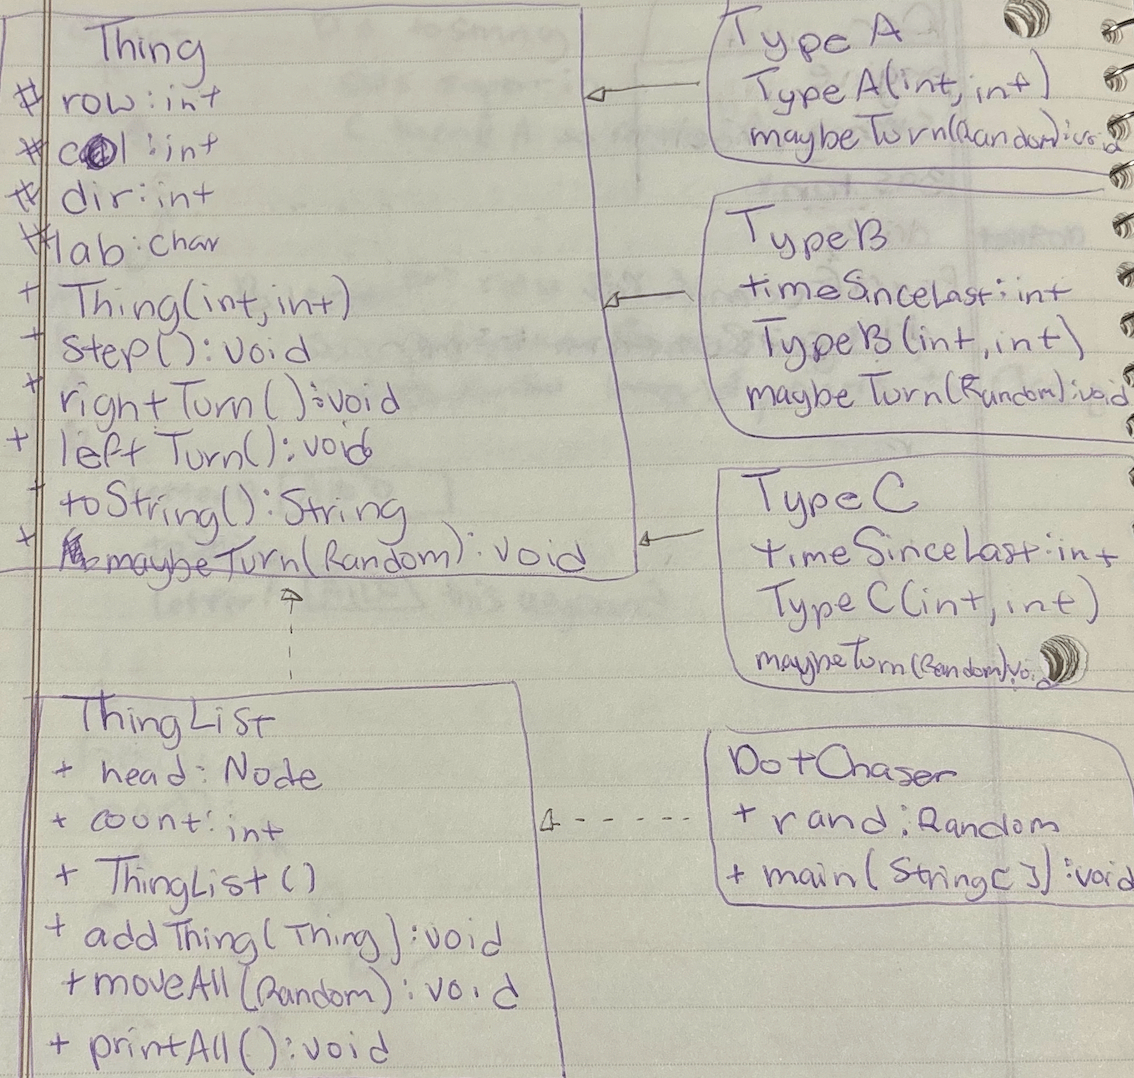 Thing
# row:int
# col:int
# dir:int
# lab:char
+ Thing(int,int)
+ step():void
+ rightTurn():void
+ leftTurn():void
+ toString():String
+ maybeTurn(Random):void
TypeA
TypeA(int,int)
maybeTurn(Random):void
TypeB
timeSinceLast:int
TypeB(int,int)
maybeTurn(Random):void
TypeC
timeSinceLast:int
TypeC(int,int)
maybeTurn(Random):void
ThingList
+ head:Node
+ count:int
+ ThingList()
+ addThing(Thing):void
+ moveAll(Random):void
+ printAll():void
DotChaser
+ rand:Random
+ main(String[]):void